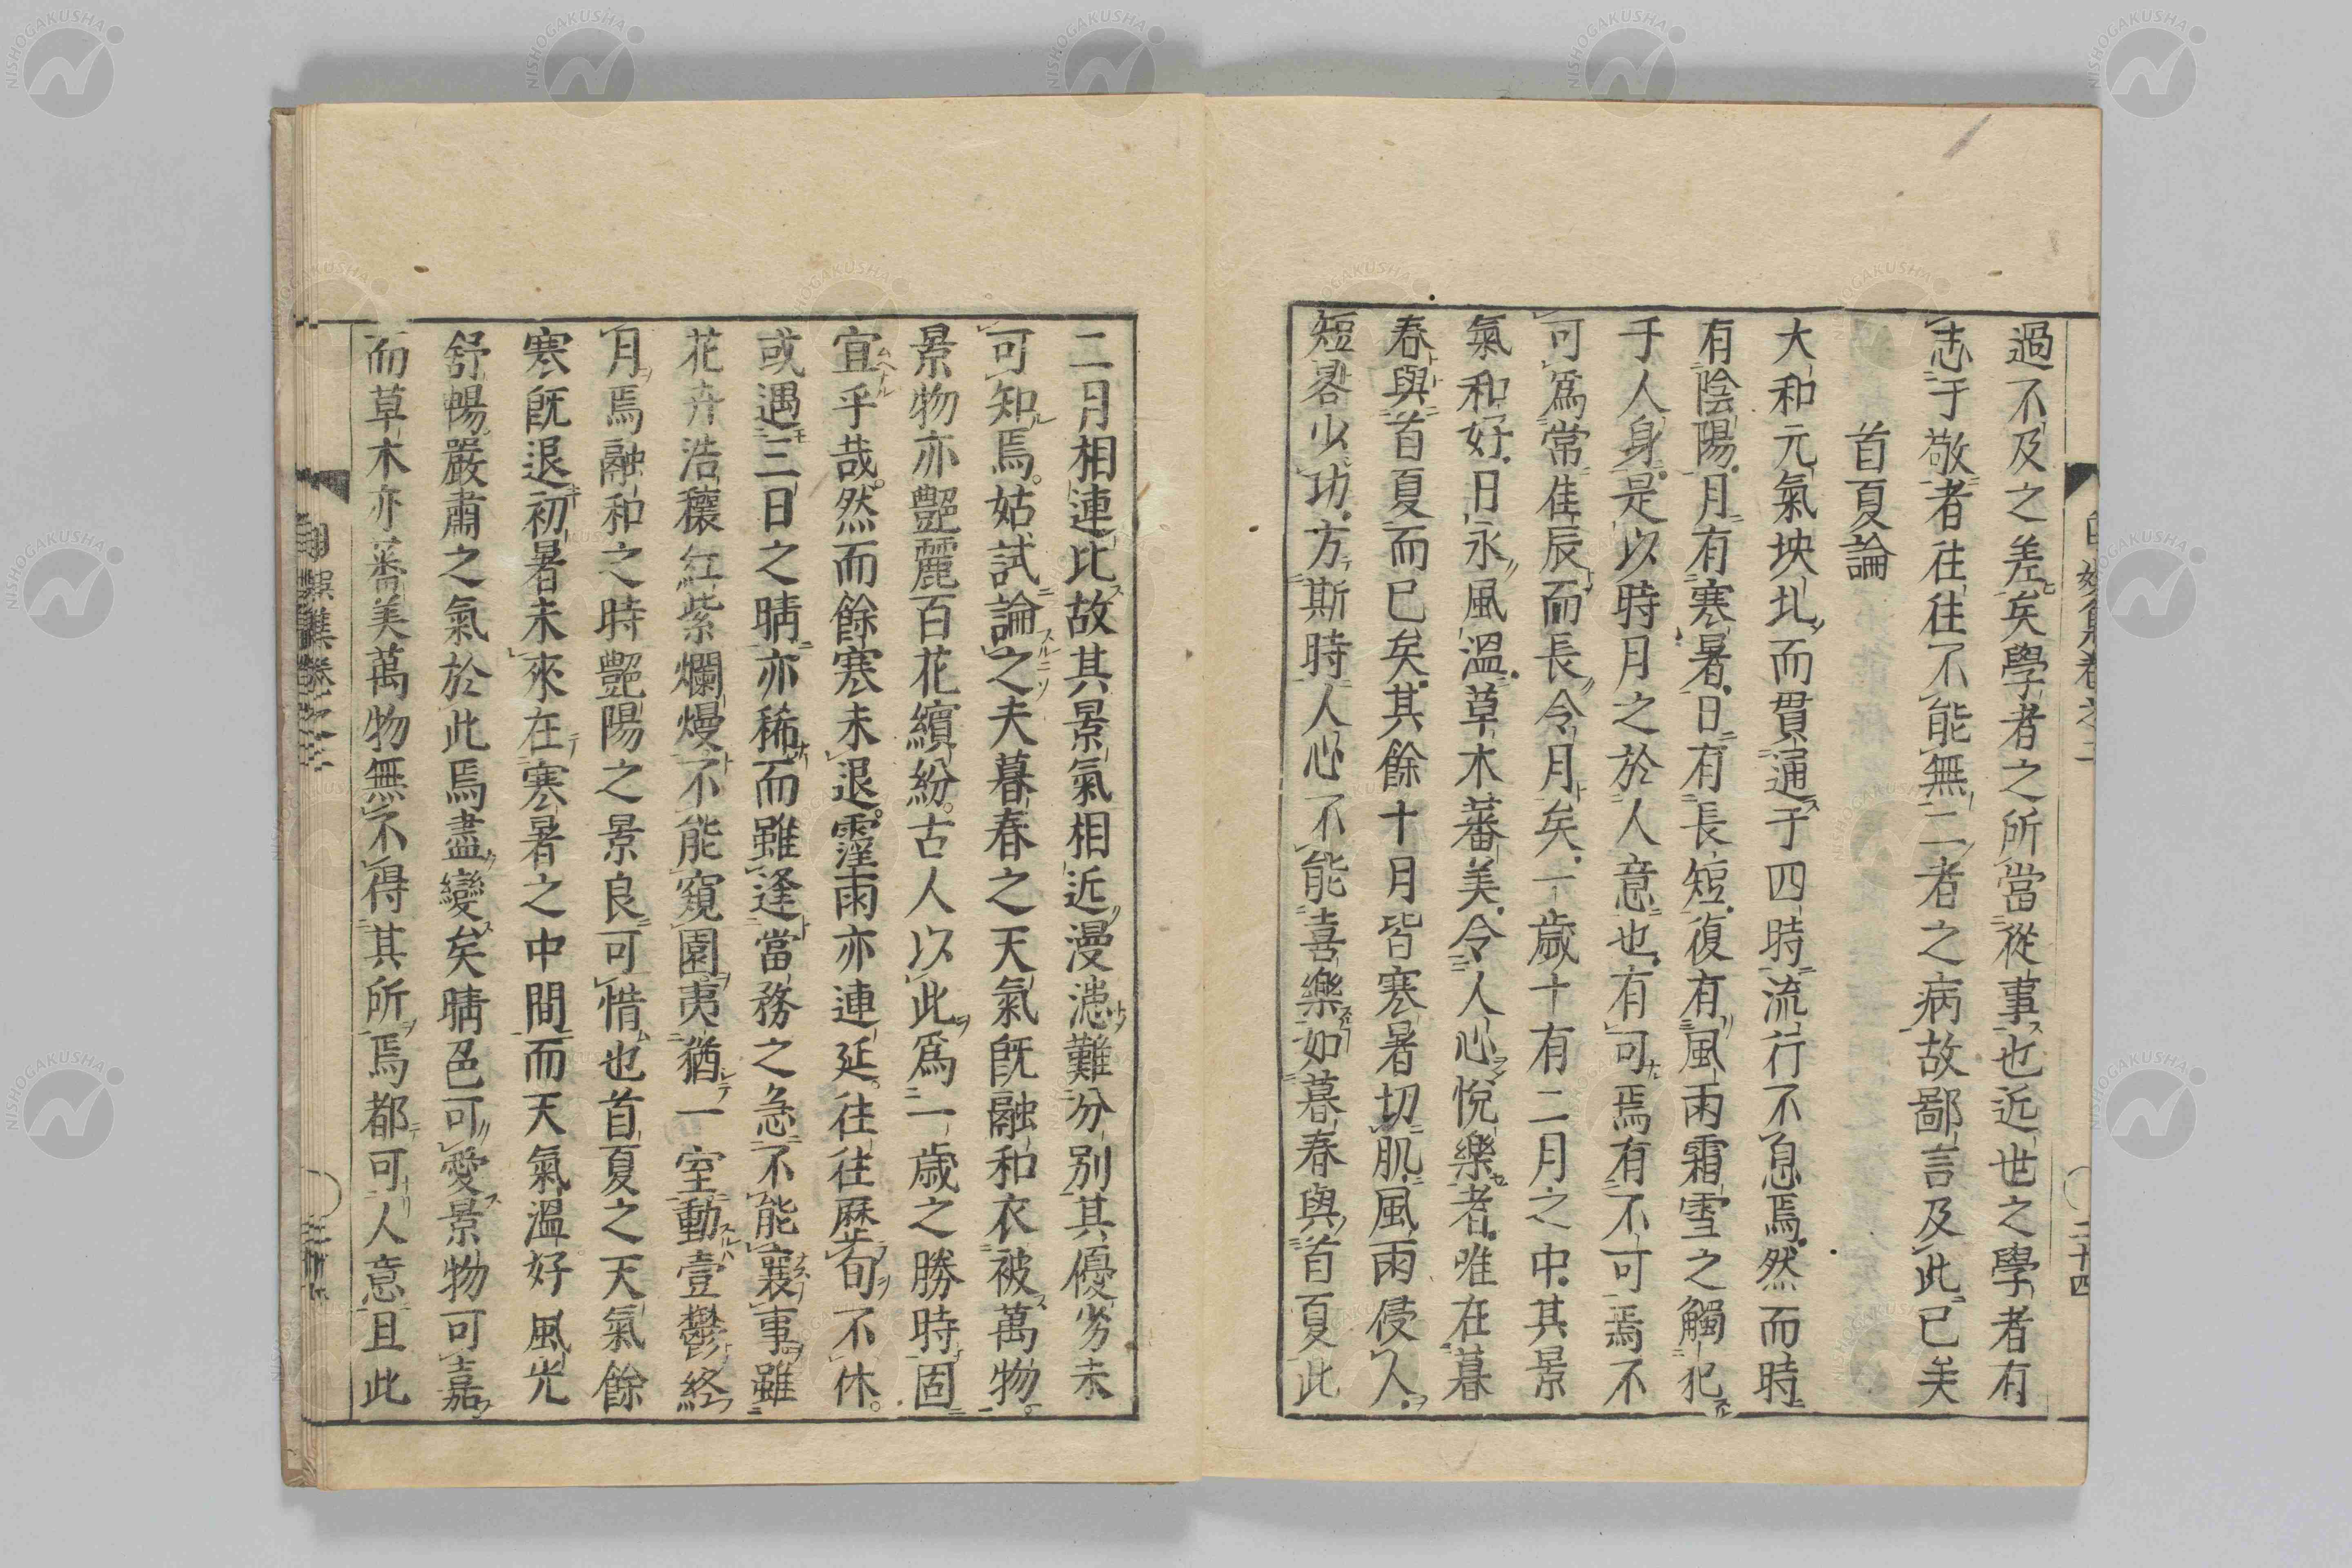 過不及之差矣學者之所當從事也近世之學者有
志于敬者往往不能無二者之病故鄙言及此已矣
首夏論
大和元氣坱圠而貫通于四時流行不息焉然而時
有陰陽月有寒暑日有長短復有風雨霜雪之觸犯
于人身是以時月之於人意也有可焉有不可焉不
可爲常佳辰而長令月矣一歳十有二月之中其景
氣和好日永風溫草木蕃美令人心悅樂者唯在暮
春與首夏而已矣其餘十月皆寒暑切肌風雨侵人
短晷少功方斯時人心不能喜樂如暮春與首夏此
二十四
二月相連比故其景氣相近漫漶難分別其優劣未
可知焉姑試論之夫暮春之天氣既融和衣被萬物
景物亦艷麗百花繽紛古人以此爲一歳之勝時固
宜乎哉然而餘寒未退霪雨亦連延往往歴旬不休
或遇三日之晴亦稀而雖逢當務之急不能襄事雖
花卉浩穰紅紫爛熳不能窺園夷猶一室動壹鬱終
月焉融和之時艷陽之景良可惜也首夏之天氣餘
寒既退初暑未來在寒暑之中間而天氣溫好風光
舒暢嚴肅之氣於此焉盡變矣晴色可愛景物可嘉
而草木亦蕃美萬物無不得其所焉都可人意且此